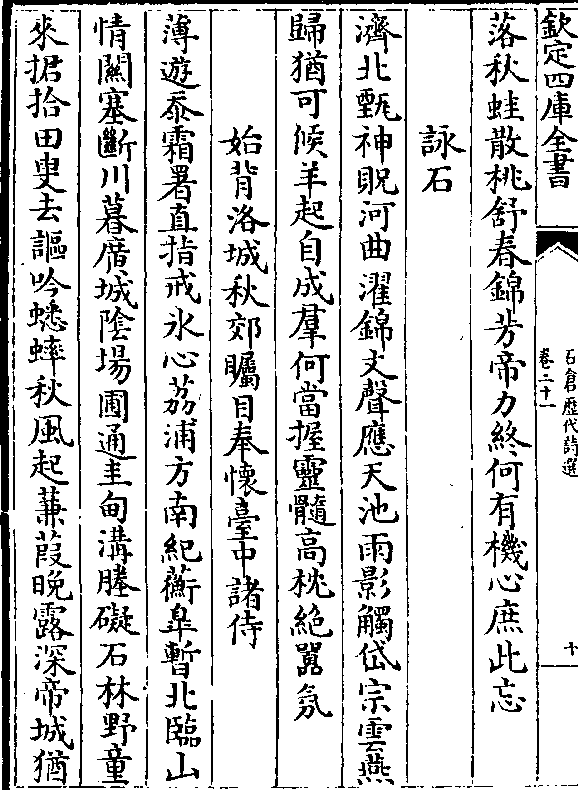 欽定四庫全書
石倉歷代詩選
卷二十一
十
落秋蛙散桃舒春錦芳帝力終何有機心庶此忘
詠石
濟北甄神貺河曲濯錦文聲應天池雨影觸岱宗雲燕
歸猶可候羊起自成羣何當握靈髓高枕絶囂氛
始背洛城秋郊矚目奉懷臺中諸侍
薄遊忝霜署直指戒氷心荔浦方南紀蘅臯暫北臨山
情關塞斷川暮廣城陰場圃通圭甸溝塍礙石林野童
來捃拾田叟去謳吟蟋蟀秋風起蒹葭晚露深帝城猶